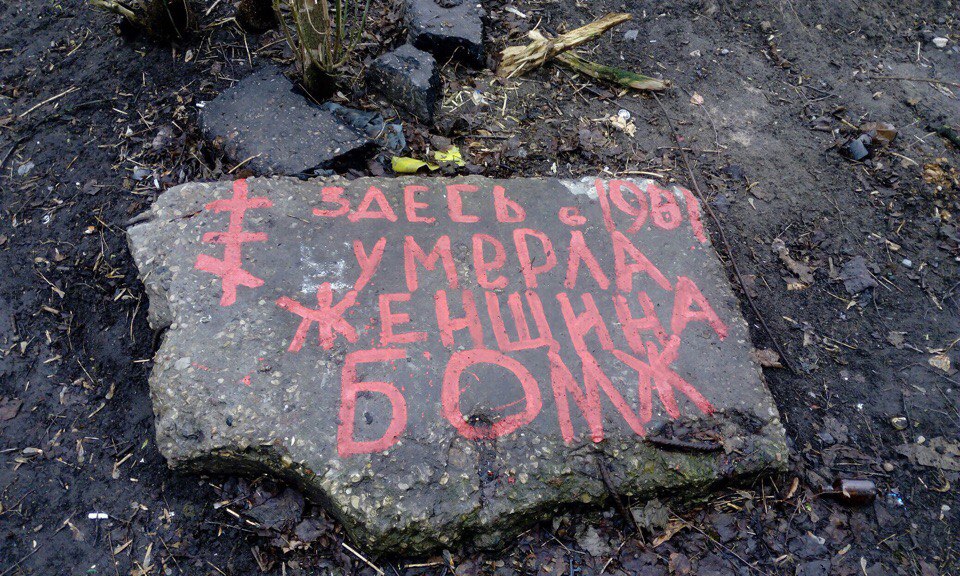 ЗДЕСЬ в 1981
УМЕРЛА
ЖЕНЩИНА
БОМЖ